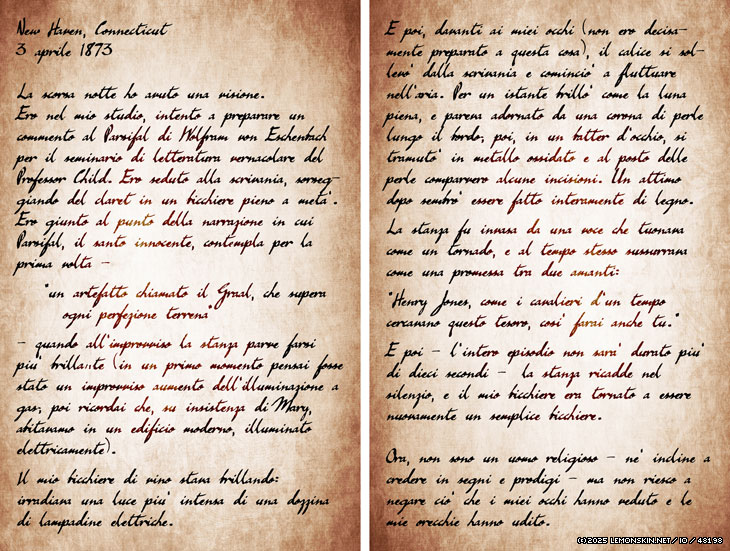 New Haven, Connecticut
3 aprile 1873
La scorsa notte ho avuto una visione.
Ero nel mio studio, intento a preparare un
commento al Parsifal di Wolfram von Eschenbach
per il seminario di letteratura vernacolare del
Professor Child. Ero seduto alla scrivania, sorseg-
giando del claret in un bicchiere pieno a meta'.
Ero giunto al punto della narrazione in cui
Parsifal, il santo innocente, contempla per la
prima volta –
"un artefatto chiamato il Graal, che supera
ogni perfezione terrena"
– quando all'improvviso la stanza parve farsi
piu' brillante (in un primo momento pensai fosse
stato un improvviso aumento dell'illuminazione a
gas; poi ricordai che, su insistenza di Mary,
abitavamo in un edificio moderno, illuminato
elettricamente).
Il mio bicchiere di vino stava brillando:
irradiava una luce piu' intensa di una dozzina
di lampadine elettriche.
E poi, davanti ai miei occhi (non ero decisa-
mente preparato a questa cosa), il calice si sol-
levo' dalla scrivania e comincio' a fluttuare
nell'aria. Per un istante brillo' come la luna
piena, e pareva adornato da una corona di perle
lungo il bordo; poi, in un batter d'occhio, si
tramuto' in metallo ossidato e al posto delle
perle comparvero alcune incisioni. Un attimo
dopo sembro' essere fatto interamente di legno.
La stanza fu invasa da una voce che tuonava
come un tornado, e al tempo stesso sussurrava
come una promessa tra due amanti:
"Henry Jones, come i cavalieri d'un tempo
cercavano questo tesoro, cosi' farai anche tu."
E poi – l'intero episodio non sara' durato piu'
di dieci secondi – la stanza ricadde nel
silenzio, e il mio bicchiere era tornato a essere
nuovamente un semplice bicchiere.
Ora, non sono un uomo religioso – ne' incline a
credere in segni e prodigi – ma non riesco a
negare cio' che i miei occhi hanno veduto e le
mie orecchie hanno udito.
(c)2025 LEMONSKIN.NET / IO / 48198